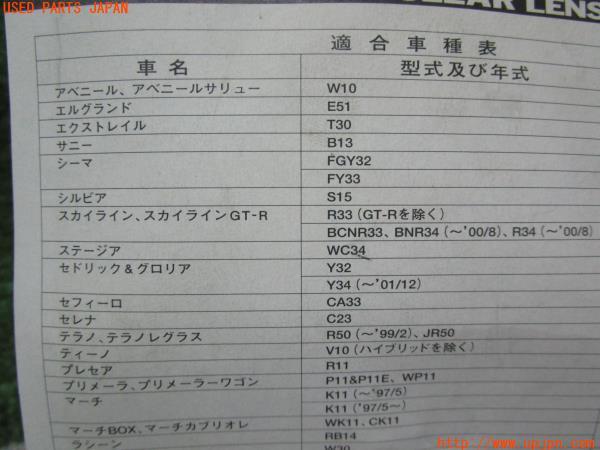 USED PARTS JAPAN
CLEAR LENS
適合車種表
車名 型式及び年式
アベニール、アベニールサリュー W10
エルグランド E51
エクストレイル T30
サニー B13
シーマ FGY32
FY33
シルビア S15
スカイライン、スカイラインGT-R R33（GT-Rを除く）
BCNR33、BNR34（～'00/8）、R34（～'00/8）
ステージア WC34
セドリック&グロリア Y32
Y34（～'01/12）
セフィーロ CA33
セレナ C23
テラノ、テラノレグラス R50（～'99/2）、JR50
ティーノ V10（ハイブリッドを除く）
プレセア R11
プリメーラ、プリメーラーワゴン P11&P11E、WP11
マーチ K11（～'97/5）
K11（'97/5～）
マーチBOX、マーチカブリオレ WK11、CK11
ラシーン RB14
W30
http://www.upjpn.com